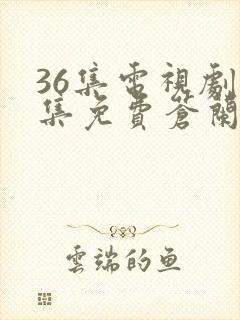 36集電視劇
集免費蒼蘭
雲端的鱼